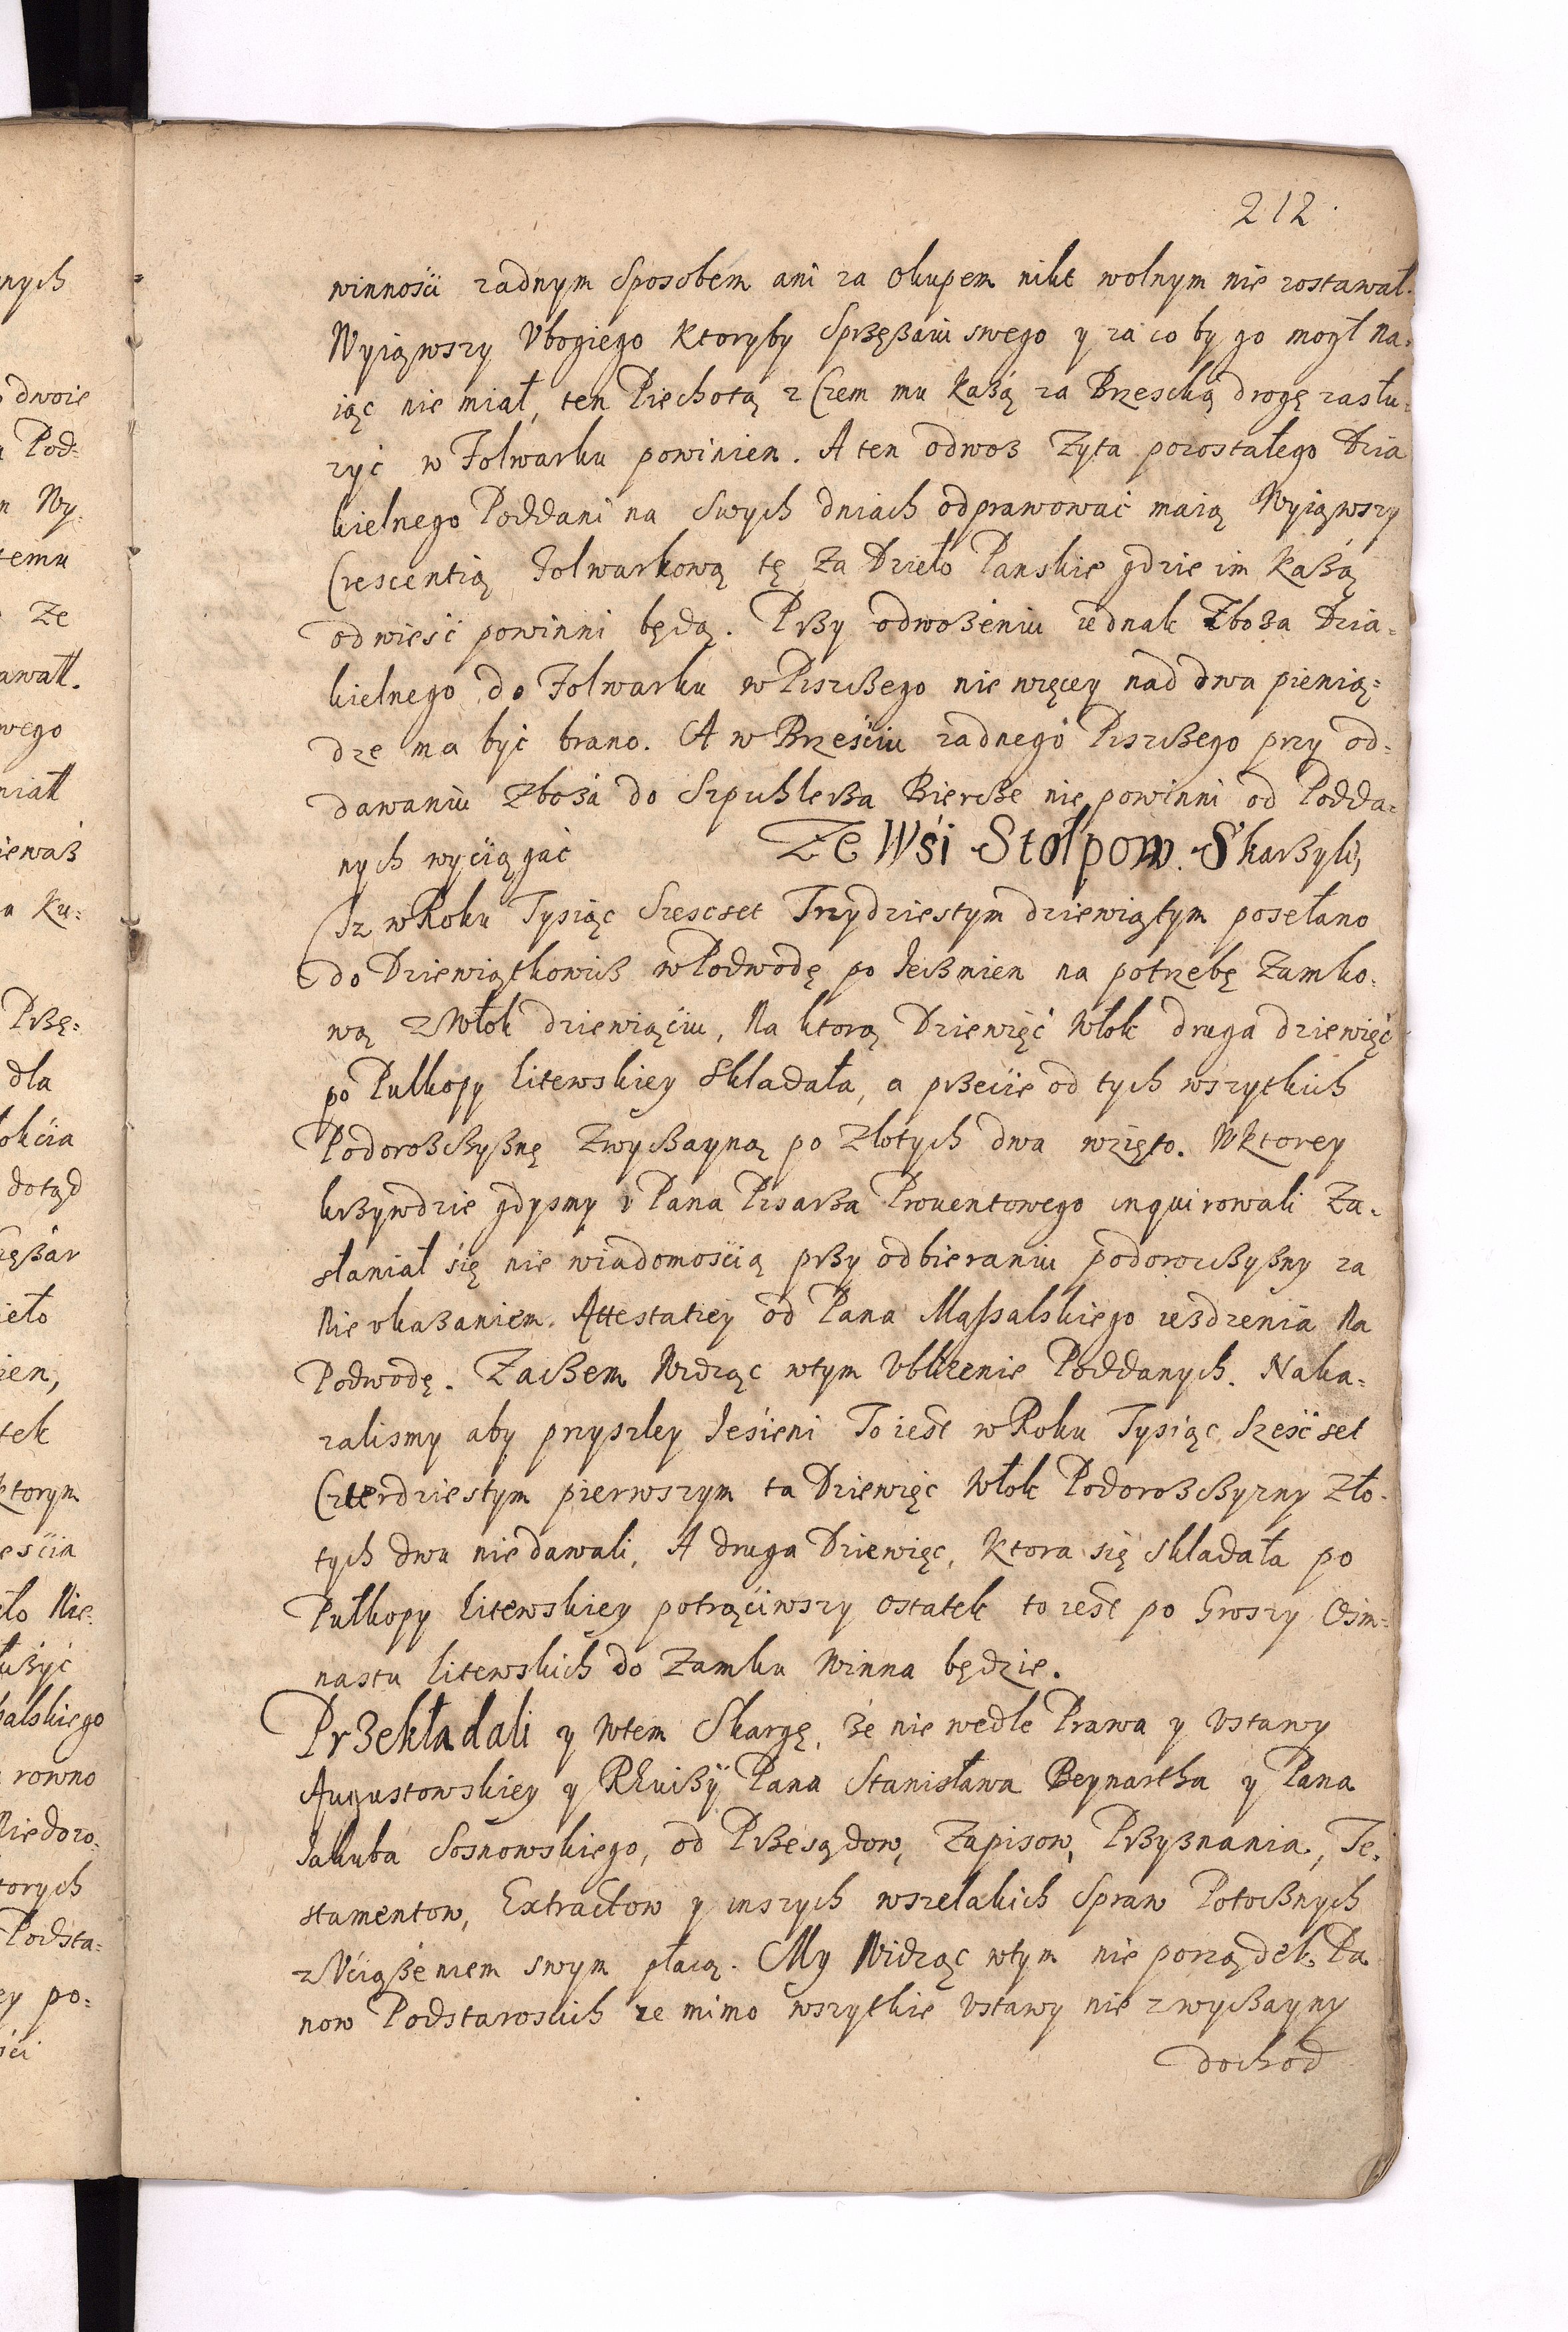 212
winnosci zadnym sposobem ani za Okupem nikt wolnym nie zostawał.
Wyiąwszy Vbogiego Ktoryby Sprzężaiu swego y za co by go mogł na-
iąc nie miał, ten Piechotą z Czem mu Każą za Brzeską drogę zasłu-
zyć w Folwarku powinien. A ten odwoz Zyta pozostałego Dzia
kielnego Poddani na Swych dniach odprawować maią Wyiąwszy
Crescentią Folwarkową tę Za Dzieło Panskie gdzie im Każą
odwieść powinni będą. Przy odwożeniu iednak Zboża Dzia-
kielnego do Folwarku w Piszczego nie więcey nad dwa pienią-
dze ma być brano. A w Brześciu zadnego Piszczego przy od-
dawaniu Zboża do Szpichlerza Bierczże nie powinni od Podda-
nych wyciągać
Ze Wśi Stołpow. Skarżyli,
Iz w Roku Tysiąc Szescset Trzydziestym dziewiątym posełano
do Dziewiątkowicz w Podwodę po Ieczmien na potrzebę Zamko-
wą z Włok dziewiąciu, Na ktorą Dziewięć Włok druga dziewięć
po Pułkopy litewskiey Składała, a przecie od tych wszytkich
Podoroszczyznę Zwyczayną po Złotych dwa wzięto. W Ktorey
krzywdzie gdysmy v Pana Pisarza Prowentowego inquirowali Za-
słaniał się nie wiadomoscią przy odbieraniu podoroszczyzny za
Nie vkazaniem. Attestatiey od Pana Massalskiego iezdzenia Na
Podwodę. Zaczem Widząc w tym Vbliżenie Poddanych. Naka-
zalismy aby przyszłey Iesieni To iest w Roku Tysiąc Szescset
Czterdziestym pierwszym ta Dziewięc Włok Podoroszczyzny Zło-
tych dwu nie dawali, A druga Dziewięc, Ktora się składała po
Pułkopy litewskiey potrąciwszy ostatek to iest po Groszy Osm-
nastu litewskich do Zamku Winna będzie.
Przekładali y w tem Skargę, że nie wedle Prawa y Vstawy
Augustowskiey y Rewiziy Pana Stanisława Beynartha y Pana
Iakuba Sosnowskiego, od Przesądow, Zapisow, Przyznania, Te-
stamentow, Extractow y inszych wszelakich Spraw Potocznych
z Vciążeniem swym płacą. My Widząc w tym nie porządek Pa
now Podstaroscich ze mimo wszytkie Vstawy nie zwyczayny
dochod